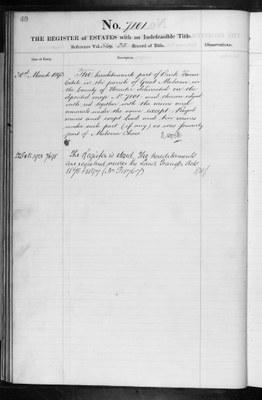 40
No. 7101
THE REGISTER of ESTATES with an Indefeasible Title.
Reference Vol. Page 38 Record of Title.
Date of Entry.
Description.
Observations.
30th March 1893
The hereditaments part of Brick Farm
Estate in the parish of Great Malvern in
the County of Worcester delineated on the
deposited map No 7101 and thereon edged
with red together with the mines and
minerals under the same except Royal
mines and except land and
under such part (if any) as was formerly
part of Malvern Chase
The Register is closed. The hereditaments
are registered under the Land Transfer Acts
1875 & 1897 (No